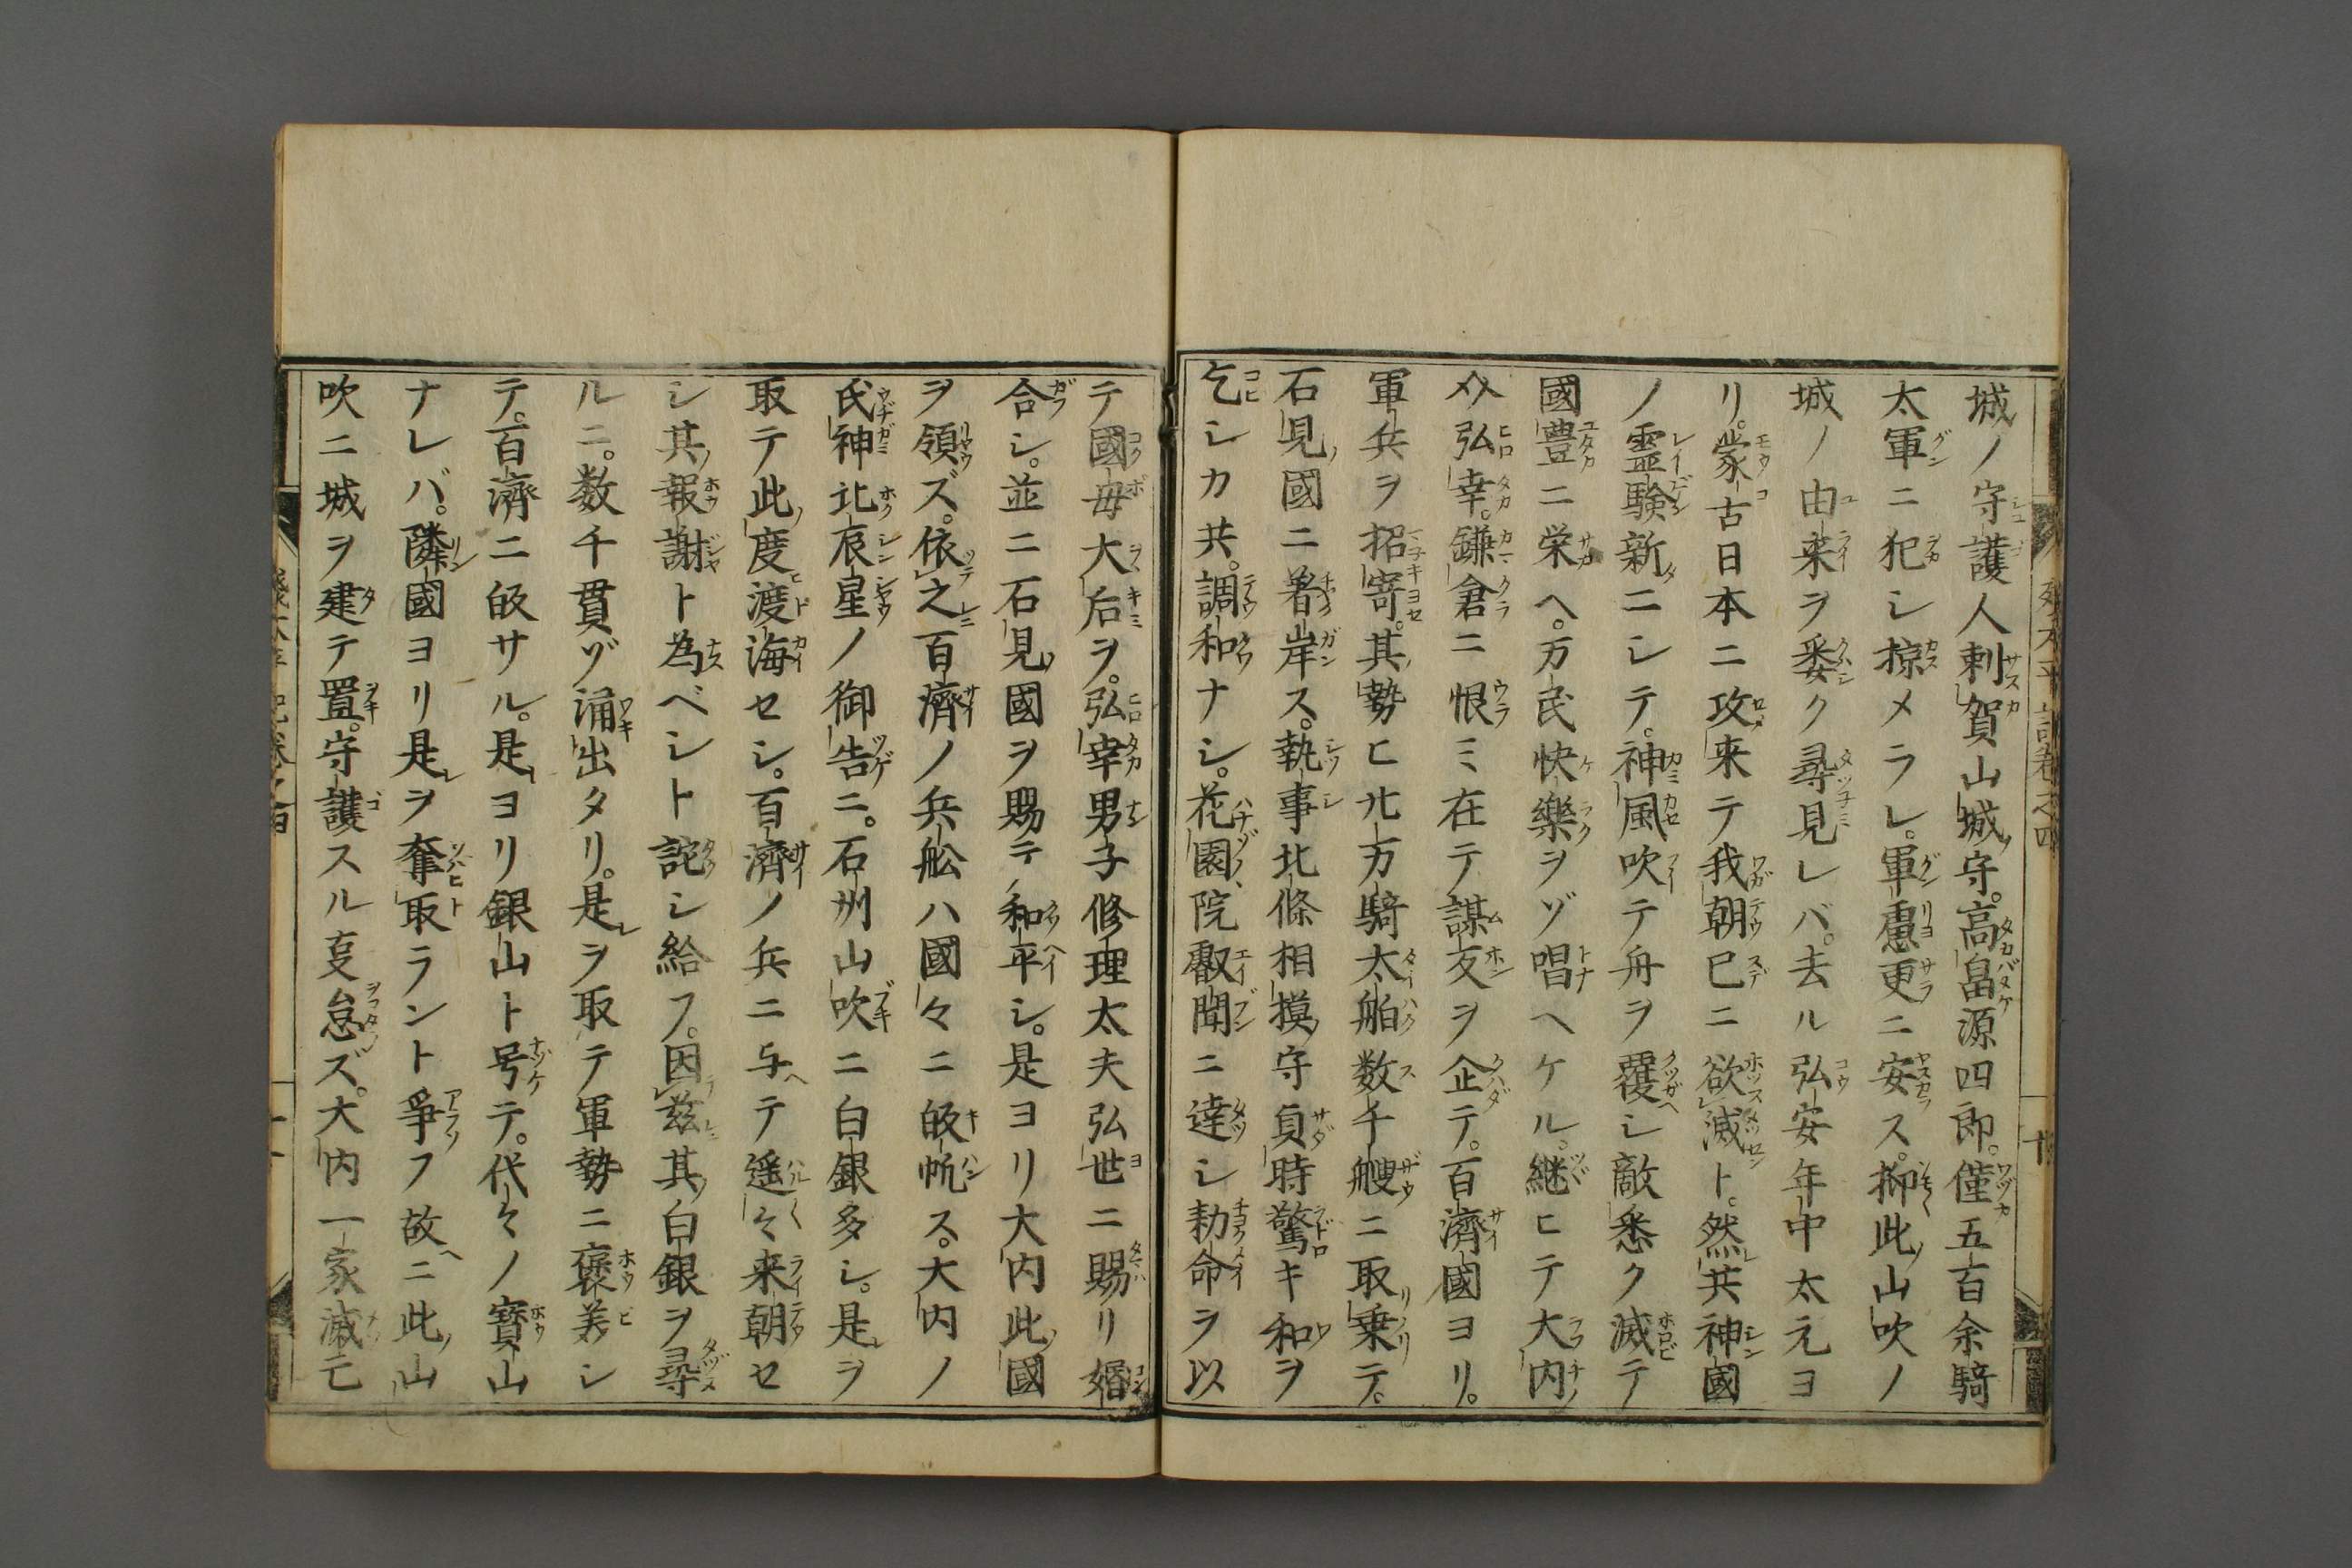 城ノ守護人刺賀山城守。高畠源四郎。僅五百余騎
太軍ニ犯シ掠メラレ。軍慮更ニ安ス。抑此山吹ノ
城ノ由来ヲ委ク尋見レバ。去ル弘安年中太元ヨ
リ。蒙古日本ニ攻来テ我朝巳ニ欲滅ト。然共神國
ノ霊験新ニシテ。神風吹テ舟ヲ覆シ敵悉ク滅テ
國豊ニ栄ヘ。万民快樂ヲゾ唱ヘケル。継ヒテ大内
弘幸。鎌倉ニ恨ミ在テ謀反ヲ企テ。百濟國ヨリ。
軍兵ヲ招寄。其勢ヒ九万騎太舶数千艘ニ取乗テ。
石見國ニ着岸ス。執事北條相摸守貞時驚キ和ヲ
乞シカ共。調和ナシ。花園院叡聞ニ達シ勅命ヲ以
テ國母大后ヲ。弘幸男子修理太夫弘世ニ賜リ婚
合シ。並ニ石見國ヲ賜テ和平シ。是ヨリ大内此國
ヲ領ズ。依之百濟ノ兵舩ハ國々ニ皈帆ス。大内ノ
氏神北辰星ノ御告ニ。石州山吹ニ白銀多シ。是ヲ
取テ此度渡海セシ。百濟ノ兵ニ与テ遥々来朝セ
シ其報謝ト為ベシト託シ給フ。因茲其白銀ヲ尋
ルニ。数千貫ヅ涌出タリ。是ヲ取テ軍勢ニ褒美シ
テ。百濟ニ皈サル。是ヨリ銀山ト号テ。代々ノ寳山
ナレバ。隣國ヨリ是ヲ奪取ラント爭フ故ニ此山
吹ニ城ヲ建テ置。守護スル亨怠ズ。大内一家滅亡